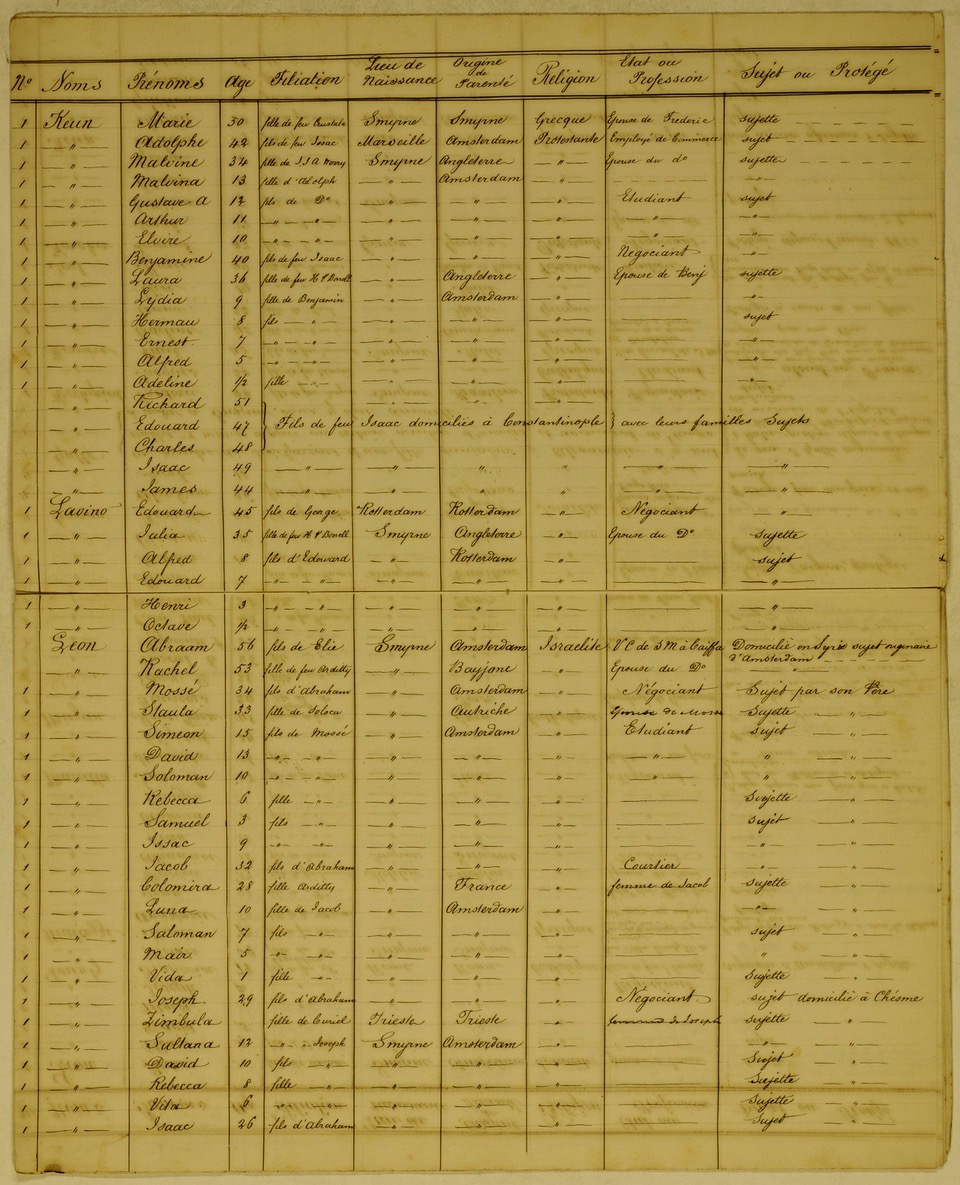 Nº Noms Prénoms Age Filiation Lieu de Naissance Origine de Parenté Religion Etat ou Profession Sujet ou Protégé
1 Keun Marie 50 fille de feu Smyrne Smyrne Grecque Epouse de Frederic sujette
1 — " — Adolphe 42 fils de feu Issac Marseille Amsterdam Protestante Employé de Commerce sujet
1 — " — Malvine 34 fille de J.J.A Smyrne Angleterre — " — Epouse du dº sujette
1 — " — Malvina 13 fille d'Adolph — " — Amsterdam — " — — " —
1 — " — Gustave A 12 fils de Dº — " — — " — — " — Etudiant sujet
1 — " — Arthur 11 — " — " — — " — — " — — " — — " — — " —
1 — " — Elvire 10 — " — " — — " — — " — — " — — " — — " —
1 — " — Benjamine 40 fils de feu Isaac — " — — " — — " — Negociant — " —
1 — " — Laura 36 fille de feu H P — " — Angleterre — " — Epouse de Benj sujette
1 — " — Lydia 9 fille de Benjamin — " — Amsterdam — " — — " —
1 — " — Hermau 8 fils — " — " — — " — — " — sujet
1 — " — Ernest 7 — " — " — — " — — " — — " — — " —
1 — " — Alfred 5 — " — " — — " — — " — — " — — " —
1 — " — Adeline ½ fille — " — — " — — " — — " — — " —
— " — Richard 51
— " — Edouard 47 } Fils de feu Isaac domiciliés à Constantinople } avec leurs familles Sujets
— " — Charles 48
— " — Isaac 49 — " — — " — " — " — — " — — " —
— " — James 44 — " — — " — " — " — — " — — " —
1 Lavino Edouard 45 fils de George Rotterdam Rotterdam — " — Négociant "
1 — " — Julia 35 fille de feu H P Smyrne Angleterre — " — Epouse du Dº Sujette
1 — " — Alfred 8 fils d'Edouard — " — Rotterdam — " — sujet
1 — " — Edouard 7 — " — " — — " — — " — — " — — " —
1 — " — Henri 3 — " — " — — " — — " — — " — — " —
1 — " — Octave ½ — " — " — — " — — " — — " — "
Leon Abraam 56 fils de Elie Smyrne Amsterdam Israelite V C de S M à Caiffa Domicilié en Syrie sujet originaire
d'Amsterdam
" Rachel 53 fille de feu Arditty " Bayjone " Epouse du Dº
1 — " — Mossé 34 fils d'Abraham " Amsterdam " Négociant Sujet par son Père
1 — " — Staula 33 fille de " Autriche " Epouse de Mosse Sujette — " —
1 — " — Simeon 15 fils de Mossé " Amsterdam " Etudiant sujet — " —
1 — " — David 13 — " — " — " — " — " — " — " — " —
1 — " — Soloman 10 — " — " — " — " — " — " — " — " —
1 — " — Rebecca 6 fille — " — " — " — " Sujette — " —
1 — " — Samuel 3 fils — " — " — " — " sujet — " —
1 — " — Issac 9 — " — " — " — " — " — " — — " —
1 — " — Jacob 32 fils d'Abraham — " — — " — " Courtier " — " —
1 — " — Colomira 28 fille Arditty — " — France " femme de Jacob sujette — " —
1 — " — Luna 10 fille de Jacob — " — Amsterdam " — " — — " —
1 — " — Saloman 7 fils — " — — " — — " — " sujet — " —
1 — " — Maïr 5 — " — " — — " — — " — " " — " —
1 — " — Vida 1 fille — " — — " — — " — " Sujette — " —
1 — " — Joseph 29 fils d'Abraham — " — — " — " Négociant sujet domicilié à Chésme
1 — " — Zimbula fille de Curiel Trieste Trieste " de Joseph sujette "
1 — " — Sultana 12 — " — " Joseph Smyrne Amsterdam " — " — — " —
1 — " — David 10 fils " — " — — " — " Sujet — " —
1 — " — Rebecca 8 fille " — " — — " — " Sujette — " —
1 — " — Vita 6 " " — " — — " — " Sujette — " —
1 — " — Isaac 26 fils d'Abraham — " — — " — " Sujet — " —